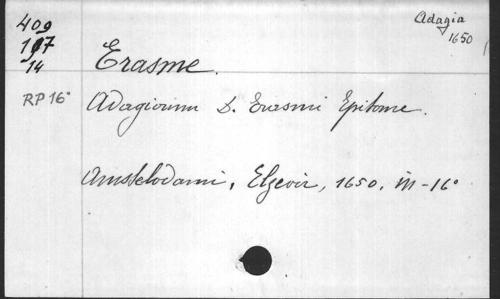 409
Adagia
1650
117
14
Erasme.
RP 16°
Adagiorum D. Erasmi Epitome.
Amstelodami, Elzevir, 1650, in-16°